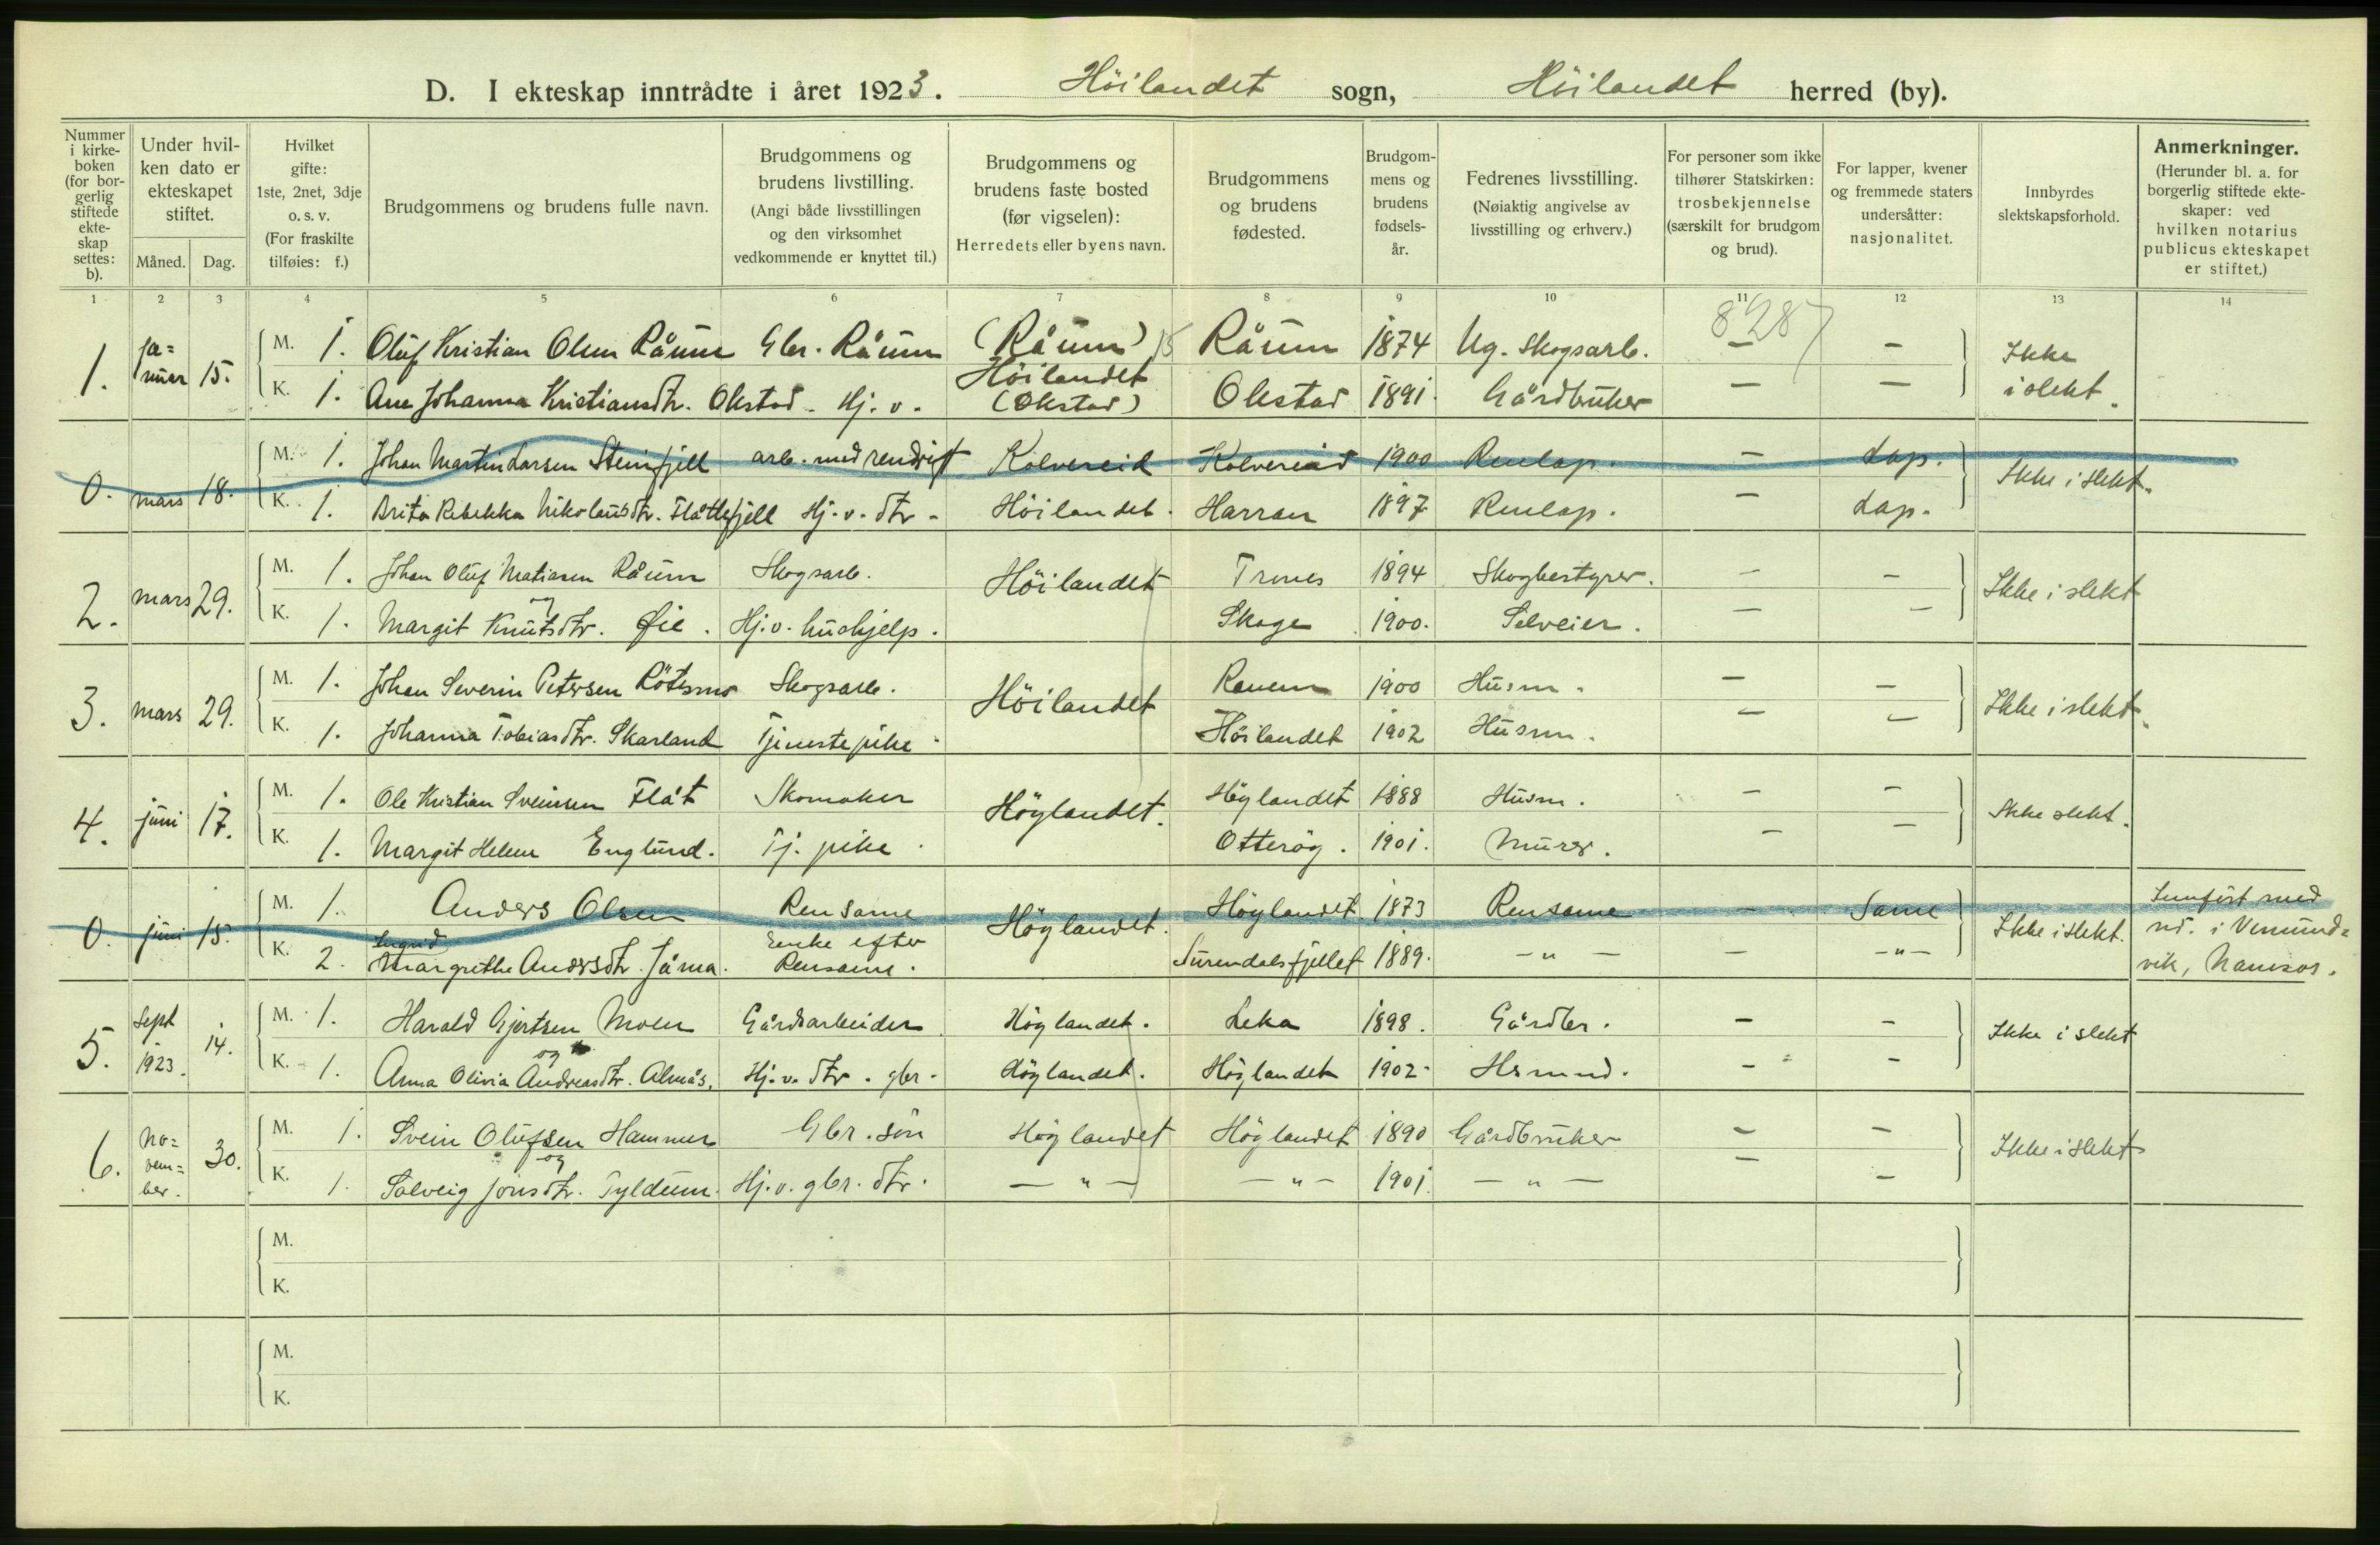 D. I ekteskap inntrådte i året 1923. Höilandet sogn, Höilandet herred (by).
Nummer i kirkeboken (for borgerlig stiftede ekteskap settes: b).
Under hvilken dato er ekteskapet stiftet.
Måned. Dag.
Hvilket gifte: 1ste, 2net, 3dje o. s. v. (For fraskilte tilføies: f.)
Brudgommens og brudens fulle navn.
Brudgommens og brudens livstilling. (Angi både livsstillingen og den virksomhet vedkommende er knyttet til.)
Brudgommens og brudens faste bosted (før vigselen): Herredets eller byens navn.
Brudgommens og brudens fødested.
Brudgommens og brudens fødselsår.
Fedrenes livsstilling. (Nøiaktig angivelse av livsstilling og erhverv.)
For personer som ikke tilhører Statskirken: trosbekjennelse (særskilt for brudgom og brud).
For lapper, kvener og fremmede staters undersåtter: nasjonalitet.
Innbyrdes slektskapsforhold.
Anmerkninger. (Herunder bl. a. for borgerlig stiftede ekteskaper: ved hvilken notarius publicus ekteskapet er stiftet.)
1 2 3 4 5 6 7 8 9 10 11 12 13 14
8287
1. januar 15. M. 1. Oluf Kristian Olsen Råum Gbr. Råum (Råum) Höilandet Råum 1874 Ug. Skogsarb. — — Ikke i slekt.
K. 1. Ane Johanna Kristiansdtr. Okstad - Hj. v. (Okstad) Okstad 1891. Gårdbruker — —
0. mars 18. M. 1. Johan Martin Larsen Steinfjell arb. med rendrift Kolvereid Kolvereid 1900 Renlap. — Lap. Ikke i slekt.
K. 1. Brita Rebekka Nikolausdtr. Flåttefjell Hj. v. dtr. Höilandet. Harran 1897 Renlap. — Lap.
2. mars 29. M. 1. Johan Oluf Matiasen Råum Skogsarb. Höilandet Trones 1894 Skogbestyrer. — — Ikke i slekt
og
K. 1. Margit Knutsdtr. Øie. Hj. v. hushjelp. Skage 1900. Selveier. — —
3. mars 29. M. 1. Johan Severin Petersen Rötesmo Skogsarb. Höilandet Ranem 1900 Husm. — — Ikke i slekt.
K. 1. Johanna Tobiasdtr. Skarland Tjenestepike. Höilandet 1902 Husm. — —
4. juni 17. M. 1. Ole Kristian Sveinsen Flåt Skomaker Höylandet. Höylandet 1888 Husm. — — Ikke slekt.
K. 1. Margit Helene Englund. Tj. pike. Otteröy. 1901. Murer. — —
0. juni 15. M. 1. Anders Olsen Rensame Höylandet. Höylandet 1873 Rensame — Same Ikke i slekt. Innført med nr. i Vemundvik, Namsos.
K. 2. Ingrid Margrethe Andersdtr. Jåma. Enke efter Rensame. Surendalsfjellet 1889. — " — — — " —
5. Sept 1923. 14. M. 1. Harald Gjertsen Moen Gårdsarbeider Höylandet. Leka 1898. Gårdbr. — — Ikke i slekt
og
K. 1. Anna Olivia Andreasdtr. Almås. Hj. v. dtr. gbr. Höylandet. Höylandet 1902. Hsmnd. — —
6. november. 30. M. 1. Svein Olufsen Hammer Gbr. sön Höylandet Höylandet 1890 Gårdbruker — — Ikke i slekt
og
K. 1. Solveig Jonsdtr. Tyldum. Hj. v. gbr. dtr. — " — — " — 1901. — " — — —
M.
K.
M.
K.